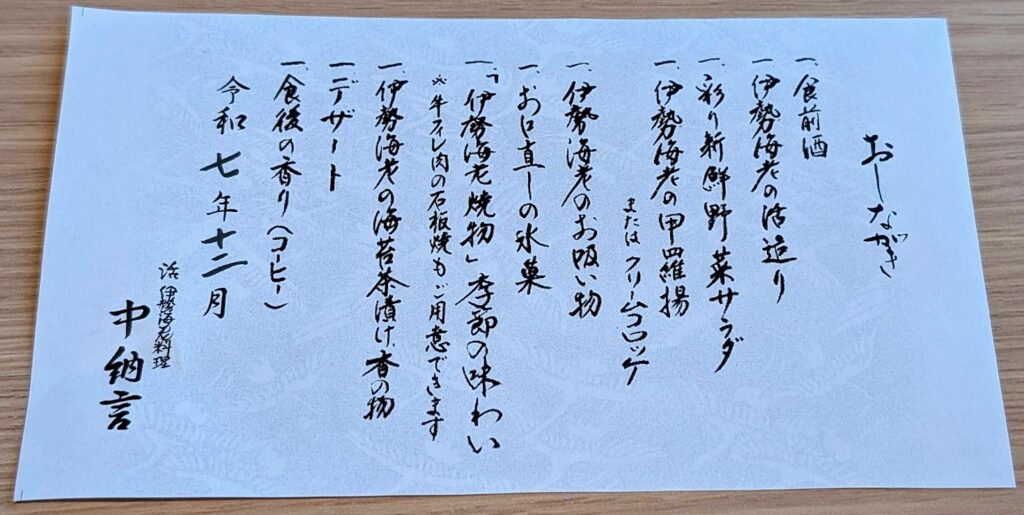 おしながき
一、食前酒
一、伊勢海老の活造り
一、彩り新鮮野菜サラダ
一、伊勢海老の甲羅揚
またはクリームコロッケ
一、伊勢海老のお吸い物
一、お口直しの氷菓
一、「伊勢海老焼物」季節の味わい
※牛フィレ肉の石板焼もご用意できます
一、伊勢海老の海苔茶漬け、香の物
一、デザート
一、食後の香り（コーヒー）
令和七年十二月
活伊勢海老料理
中納言